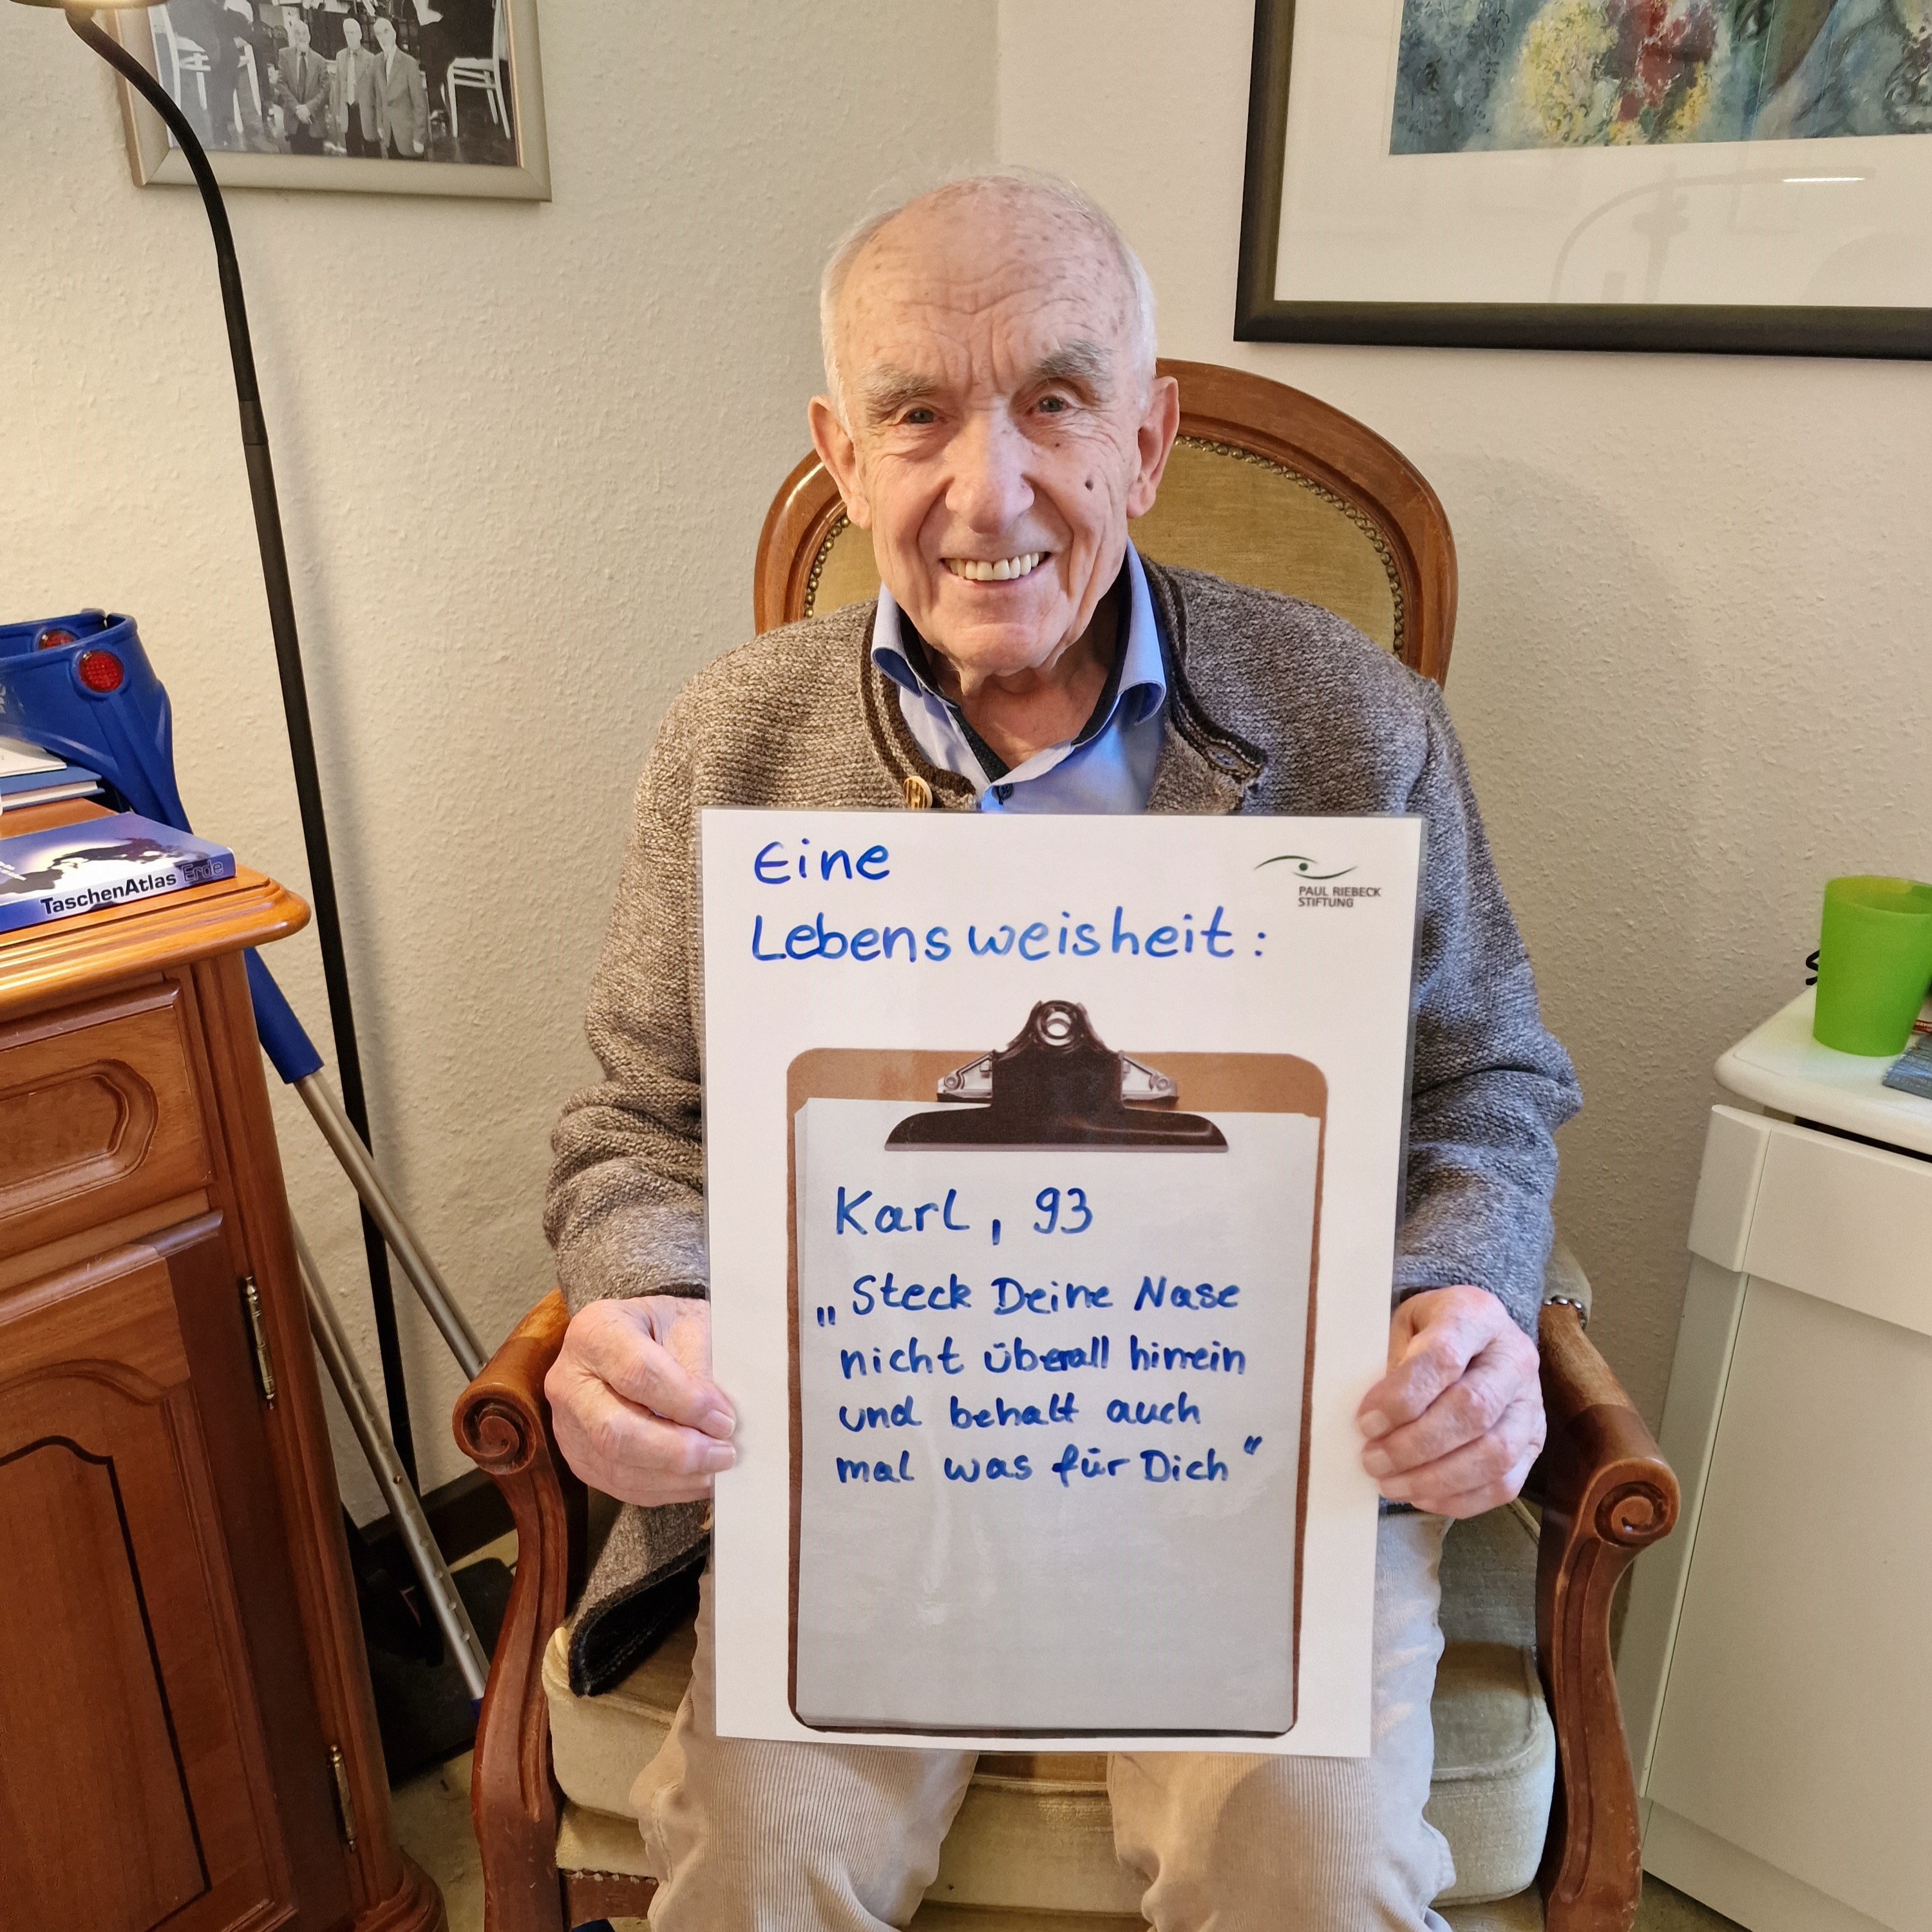 Eine
Lebensweisheit:
PAUL RIEBECK
STIFTUNG
TaschenAtlas Erde
Karl, 93
„Steck Deine Nase
nicht überall hinein
und behalt auch
mal was für Dich“